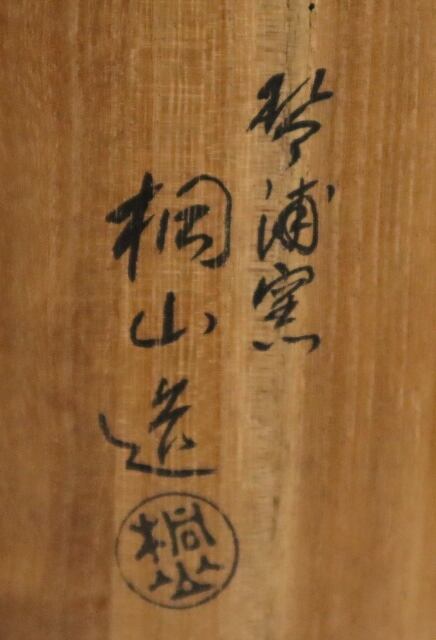 琴浦窯
桐山造
桐山